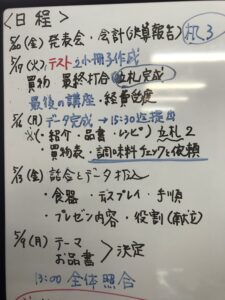 <日程>
5/20(金) 発表会・会計(決算報告) 机3
5/17(火) テスト 小冊子作成
買物 最終打合 立札完成
最後の講座・経費
5/16(月) データ完成 → 15:30迄提出
※(・紹介・品書・レシピ) 立札2
・買物表・調味料チェックと依頼
5/13(金) 試合とデータ打込
・食器・ディスプレイ・手順
・プレゼン内容・役割(献立)
5/9(月) テーマ
お品書 > 決定
13:00 全体照合